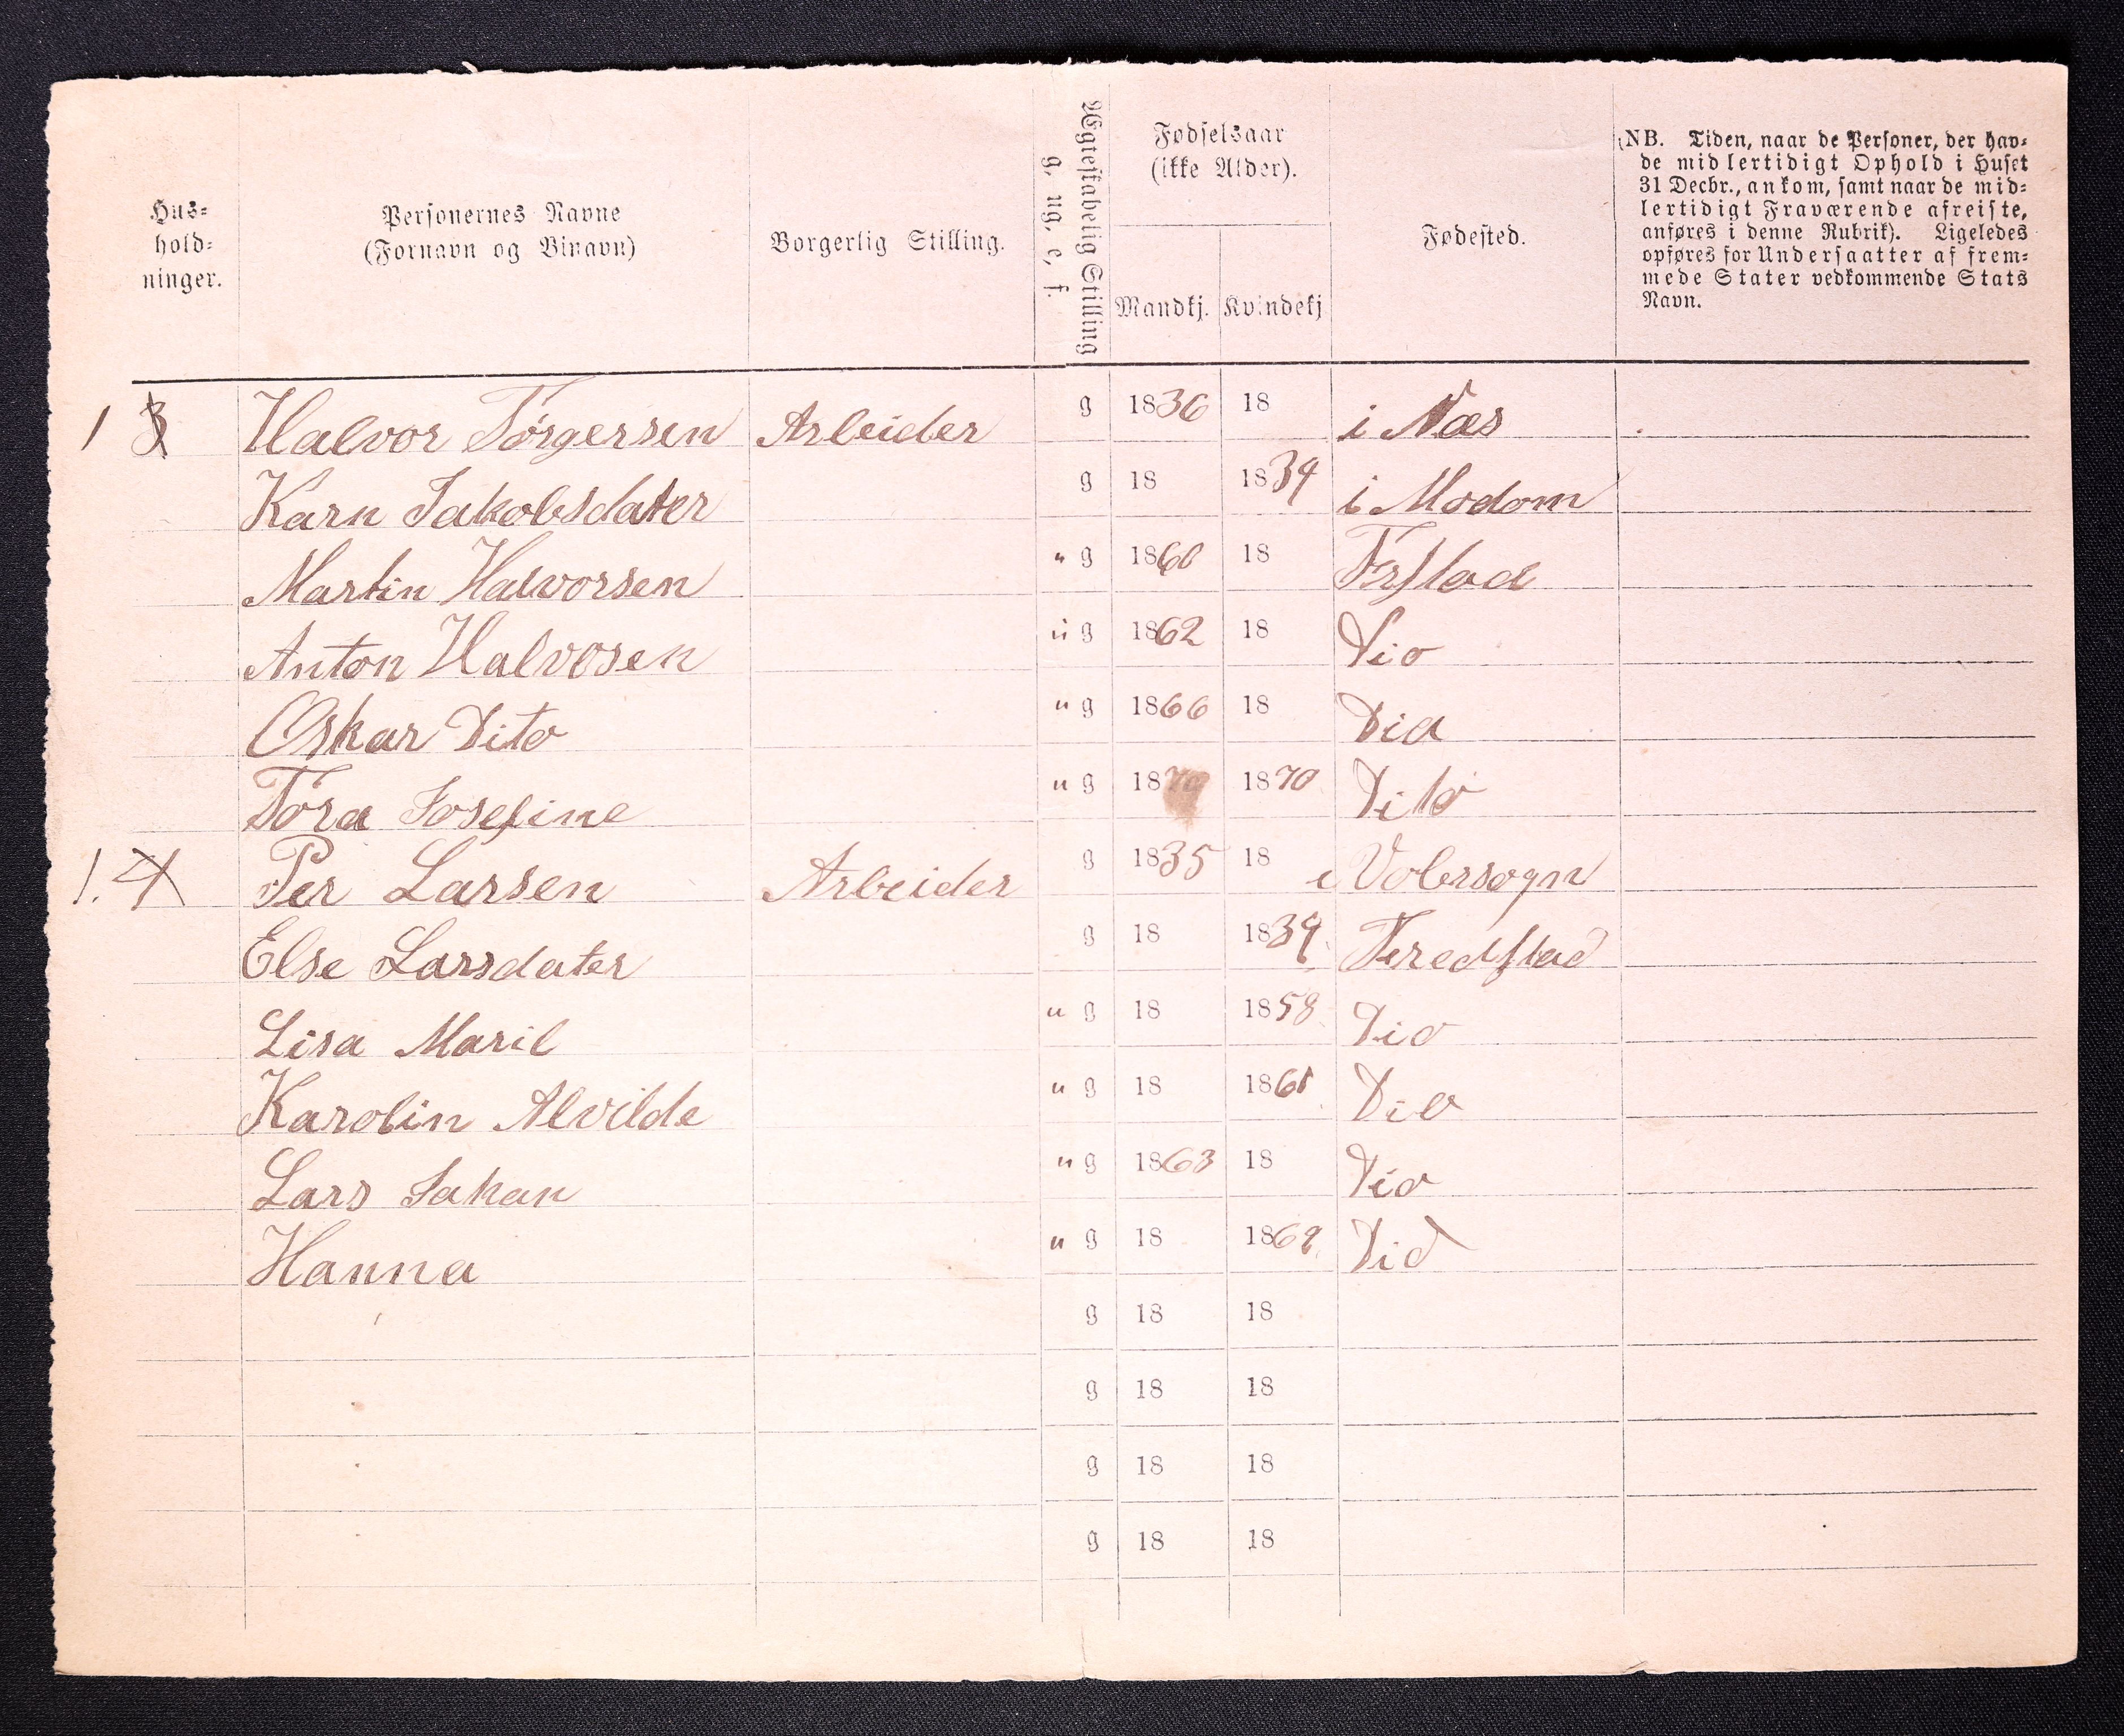 Hus-
hold-
ninger.
Personernes Navne
(Fornavn og Binavn)
Borgerlig Stilling.
Ægteskabelig Stilling
g. ug. e, f.
Fødselsaar
(ikke Alder).
Mandkj. Kvindekj
Fødested.
NB. Tiden, naar de Personer, der hav-
de midlertidigt Ophold i Huset
31 Decbr., ankom, samt naar de mid-
lertidigt Fraværende afreiste,
anføres i denne Rubrik). Ligeledes
opføres for Undersaatter af frem-
mede Stater vedkommende Stats
Navn.
1 3 Halvor Torgersen Arbeider g 1836 18 i Næs
Karn Jakobsdater g 18 1834 i Modom
Martin Halvorsen u g 1860 18 Frstad
Anton Halvosen u g 1862 18 Dio
Oskar Dito u g 1866 18 Dio
Tora Josefine u g 1870 1870 Dito
1. 4 Per Larsen Arbeider g 1835 18 i Volersogn
Else Larsdater g 18 1839 Feredstad
Lisa Maril u g 18 1858 Dio
Karolin Alvilde u g 18 1861 Dio
Lars Jakan u g 1863 18 Dio
Hanna u g 18 1869 Dio
g 18 18
g 18 18
g 18 18
g 18 18